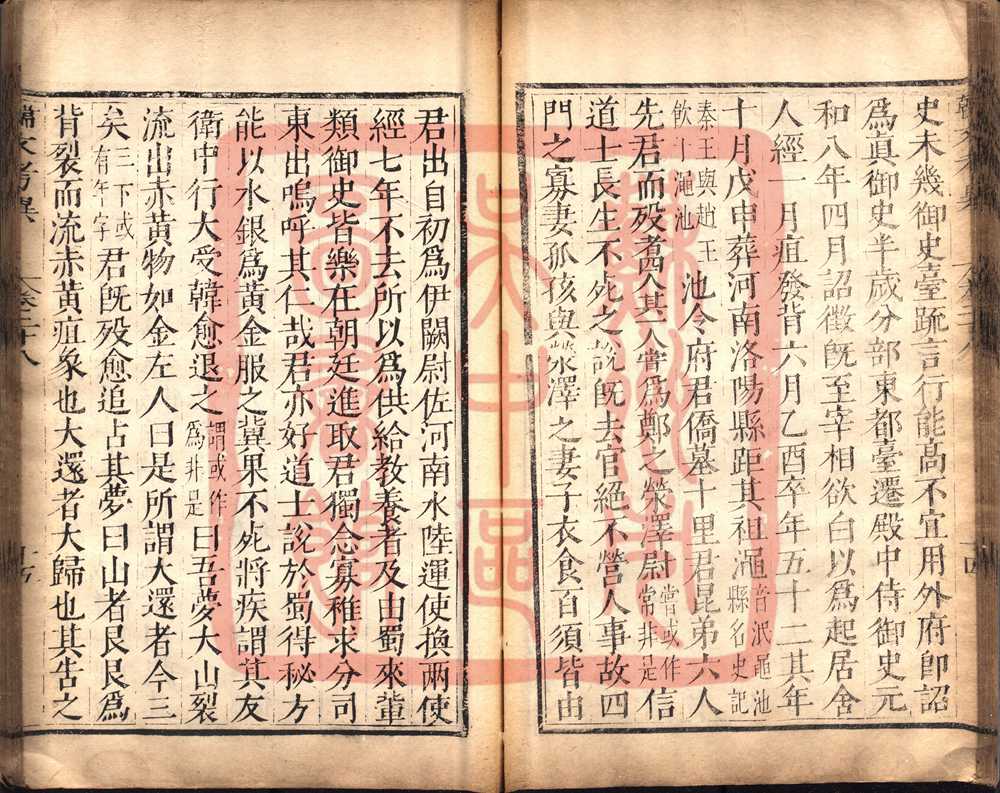 史未幾御史臺䟽言行能高不宜用外府卽詔
爲眞御史半歲分部東都臺遷殿中侍御史元
和八年四月詔徵旣至宰相欲白以爲起居舍
人經一月疽發背六月乙酉卒年五十二其年
十月戊申葬河南洛陽縣距其祖澠音泯黽池縣名史記
秦王與趙王飲于澠池池令府君僑墓十里君昆弟六人
先君而歿者四人其一人嘗爲鄭之滎澤尉嘗或作常非是信
道士長生不死之說旣去官絕不營人事故四
門之寡妻孤孩與滎澤之妻子衣食百須皆由
君出自初爲伊闕尉佐河南水陸運使換兩使
經七年不去所以爲供給教養者及由蜀來輩
類御史皆樂在朝廷進取君獨念寡稚求分司
東出嗚呼其仁哉君亦好道士說於蜀得秘方
能以水銀爲黃金服之冀果不死將疾謂其友
衛中行大受韓愈退之謂或作爲非是曰吾夢大山裂
流出赤黃物如金左人曰是所謂大還者今三
矣三下或有年字君旣歿愈追占其夢曰山者艮艮爲
背裂而流赤黃疽象也大還者大歸也其告之